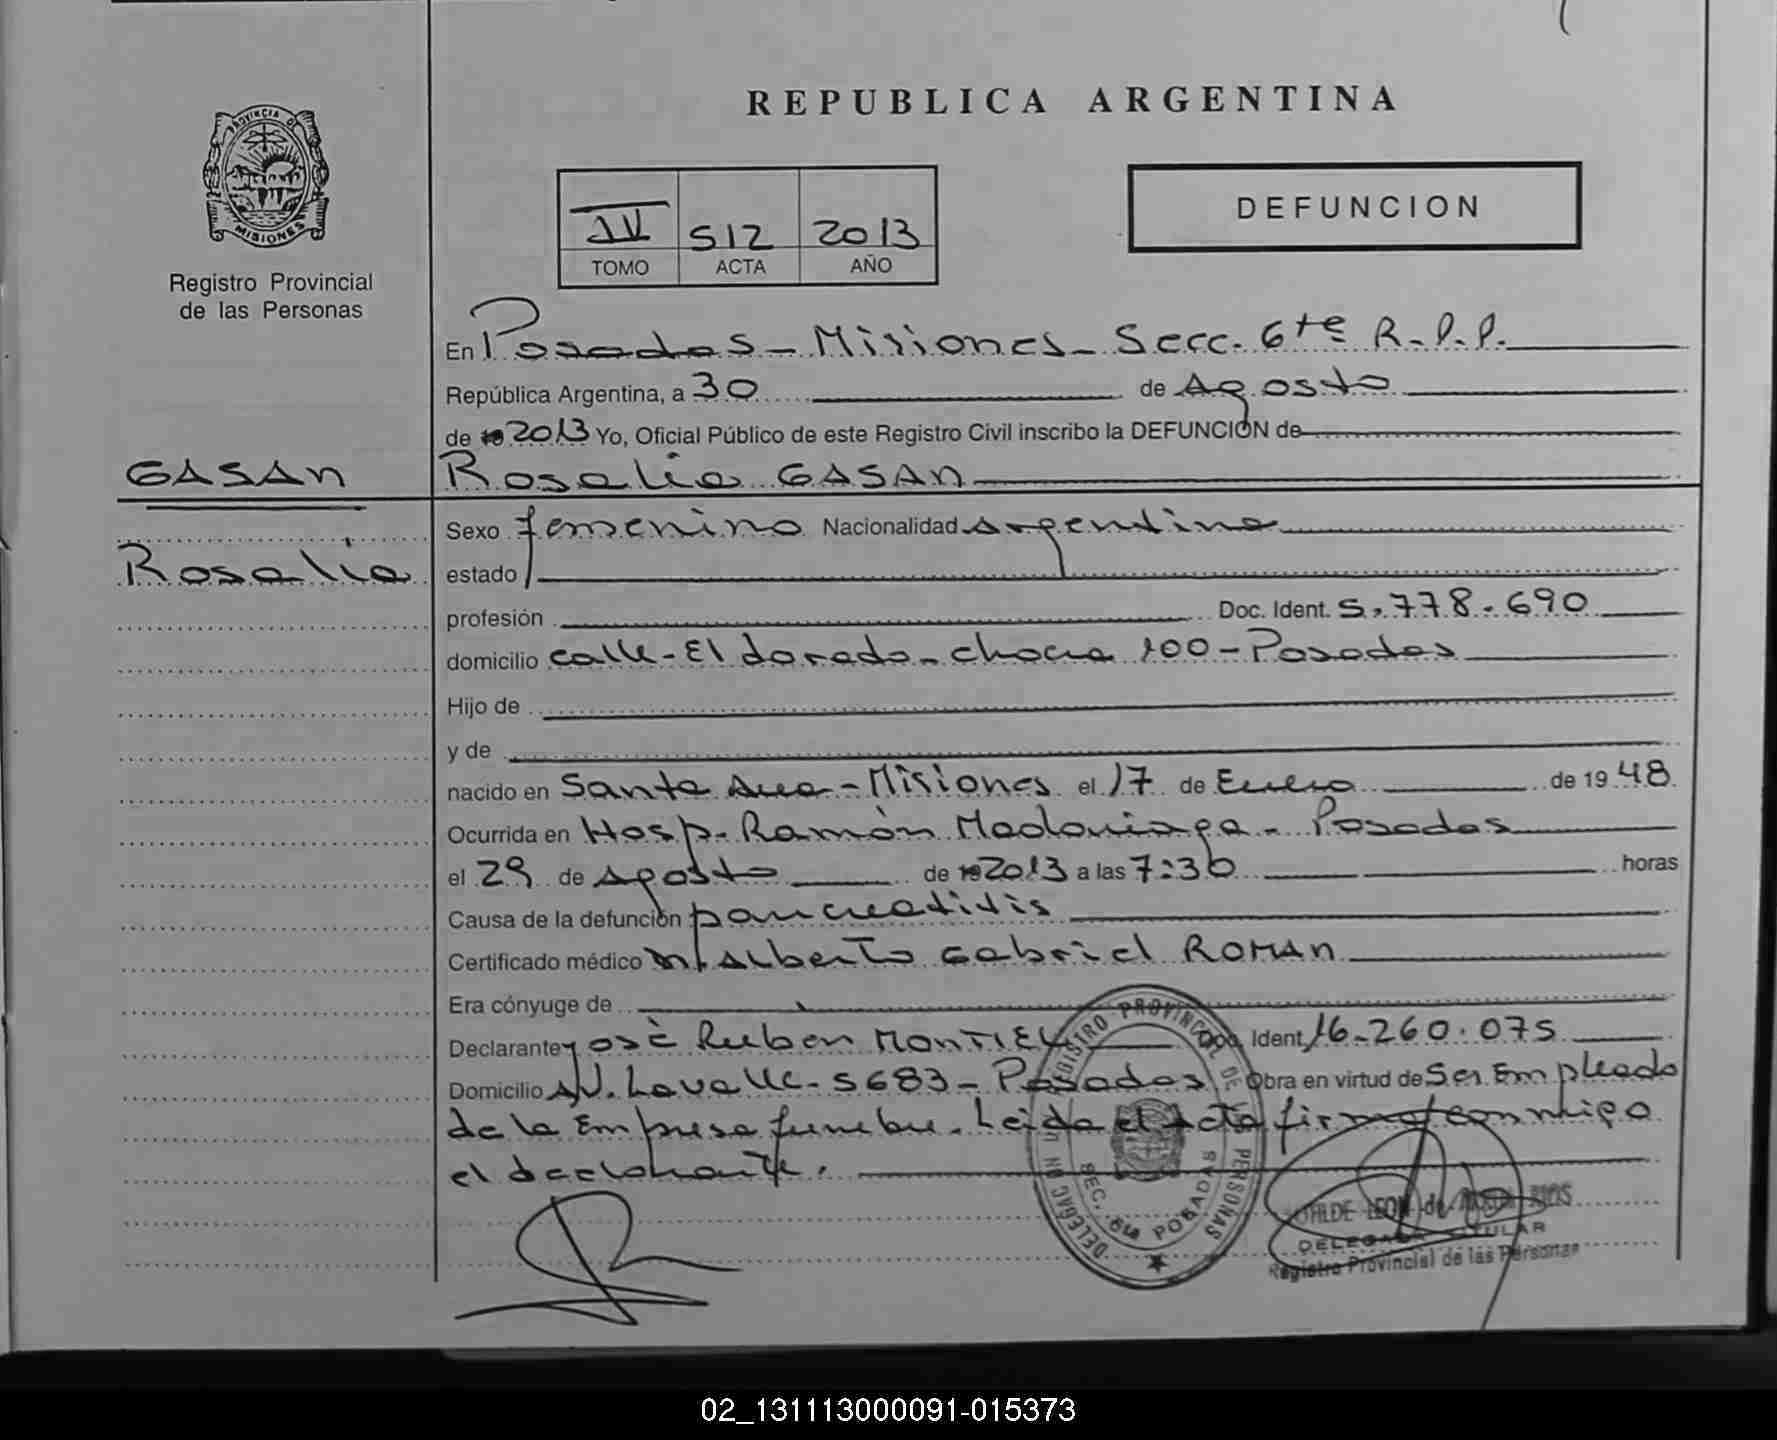 REPUBLICA ARGENTINA
PROVINCIA D
MISIONES
Registro Provincial
de las Personas
DEFUNCION
IV 512 2013
TOMO ACTA AÑO
En Posadas - Misiones - Secc. 6te R.P.P.
República Argentina, a 30 de Agosto
de 2013 Yo, Oficial Público de este Registro Civil inscribo la DEFUNCIÓN de
GASAN
Rosalia GASAN
Rosalia
Sexo femenino Nacionalidad Argentina
estado
profesión Doc. Ident. 5.778.690
domicilio calle - El dorado - chacra 100 - Posadas
Hijo de
y de
nacido en Santa Ana - Misiones el 17 de Enero de 1948
Ocurrida en Hosp. Ramón Madariaga - Posadas
el 29 de Agosto de 2013 a las 7:30 horas
Causa de la defunción pancreatitis
Certificado médico Alberto Gabriel ROMAN
Era cónyuge de
Declarante José Ruben MONTIEL Doc. Ident. 16.260.075
Domicilio AV. Lavalle - 5683 - Posadas Obra en virtud de Ser Empleado
de la Empresa funebre. Leida el Acta firma conmigo
el declarante.
REGISTRO PROVINCIAL DE PERSONAS
SEC. 6ta POSADAS
LEON de
DELEGADA TITULAR
Registro Provincial de las Personas
02_131113000091-015373